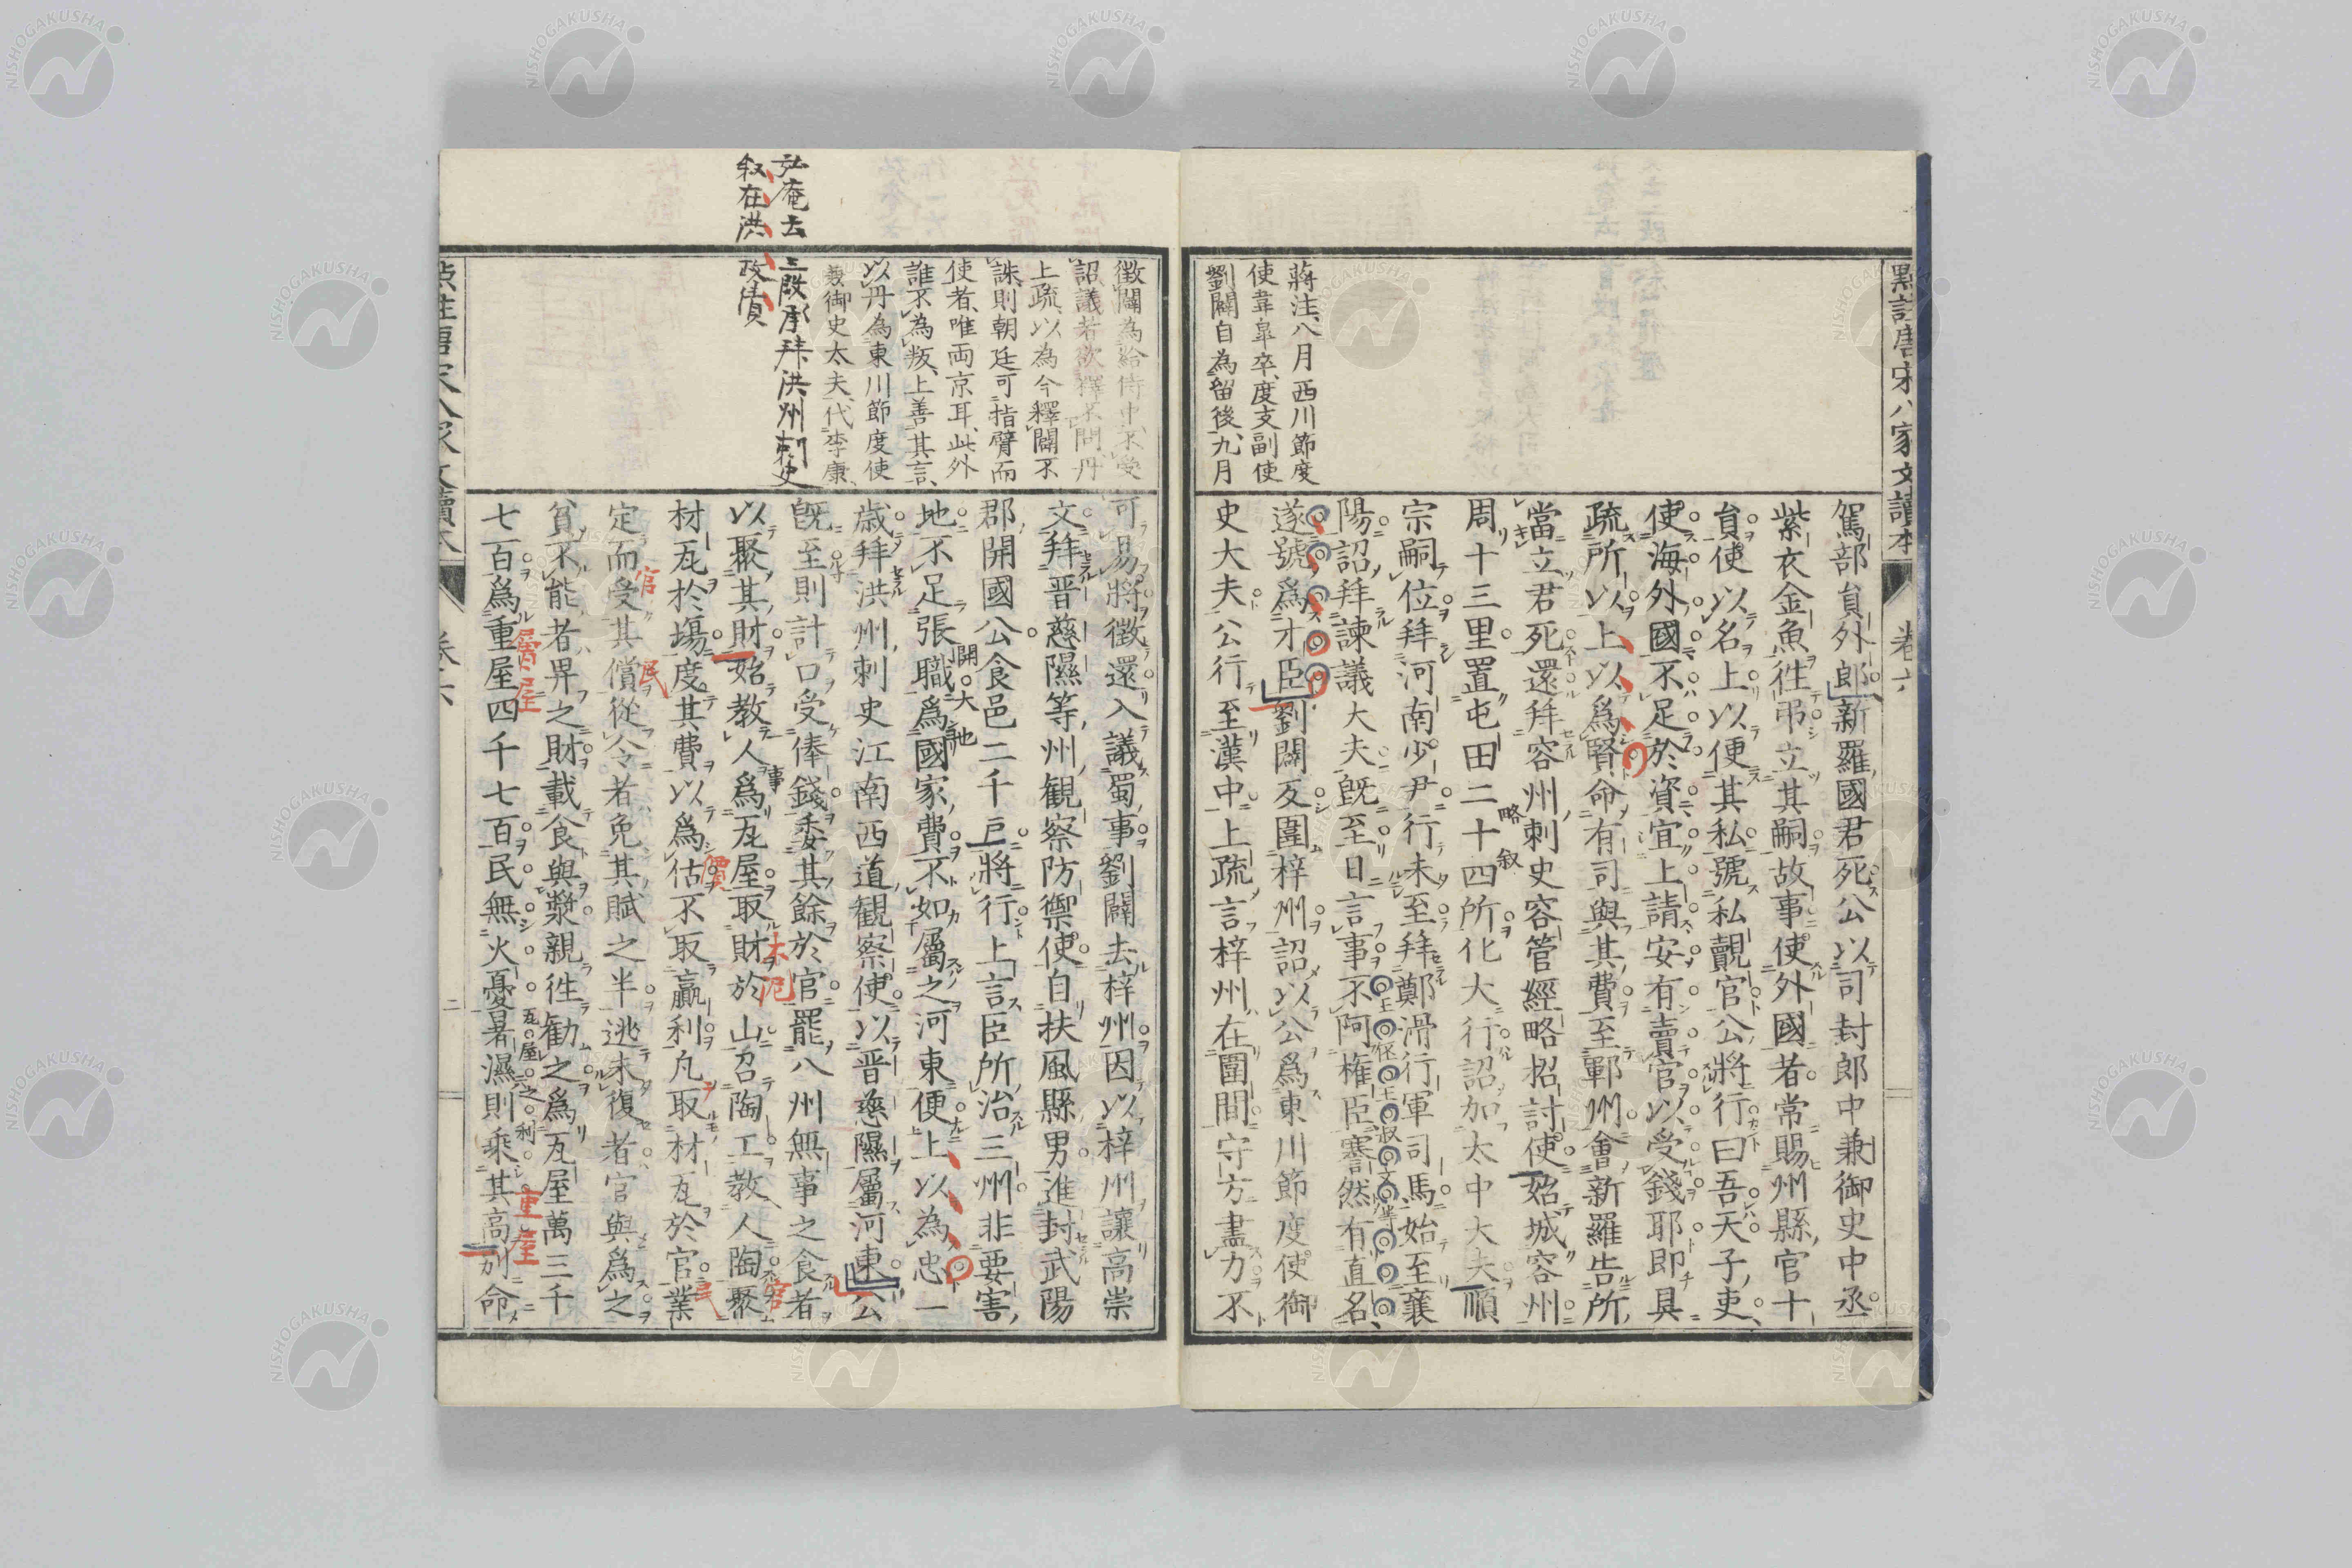 點註唐宋八家文讀本
卷六
駕部貟外郎新羅國君死公以司封郎中兼御史中丞
紫衣金魚徃弔立其嗣故事使外國者常賜州縣官十
貟使以名上以便其私號私覿官公將行曰吾天子吏
使海外國不足於資宜上請安有賣官以受錢耶即具
疏所以上以爲賢命有司與其費至鄆州會新羅告所
當立君死還拜容州刺史容管經略招討使始城容州
周十三里置屯田二十四所化大行詔加太中大夫順
宗嗣位拜河南少尹行未至拜鄭滑行軍司馬始至襄
陽詔拜諫議大夫既至日言事不阿權臣謇然有直名
遂號爲才臣劉闢反圍梓州詔以公爲東川節度使御
史大夫公行至漢中上疏言梓州在圍間守方盡力不
蔣注八月西川節度
使韋皐卒、度支副使
劉闢自為留後、九月
徴闢為給侍中、不受
詔議者欲釋不問丹
上疏、以為今釋闢不
誅則朝廷可指臂而
使者、唯両京耳、此外
誰不為叛、上善其言、
以丹為東川節度使
兼御史太夫、代李康、
弘庵云 三段承拜洪州刺史
叙在洪 政債
可易將徴還入議蜀事劉闢去梓州因以梓州讓高崇
文拜晋慈隰等州観察防禦使自扶風縣男進封武陽
郡開國公食邑二千戸將行上言臣所治三州非要害
地不足張職爲國家費不如屬之河東便上以為忠一
歳拜洪州刺史江南西道観察使以晋慈隰屬河東公
既至則計口受俸錢委其餘於官罷八州無事之食者
以聚其財始教人爲瓦屋取財於山召陶工教人陶聚
材瓦於塲度其費以爲估不取贏利凡取材瓦於官業
定而受其償從令者免其賦之半逃未復者官與爲之
貧不能者畀之財載食與漿親徃勧之爲瓦屋萬三千
七百爲重屋四千七百民無火憂暑濕則乘其高別命
點註唐宋八家文讀本
卷六
二